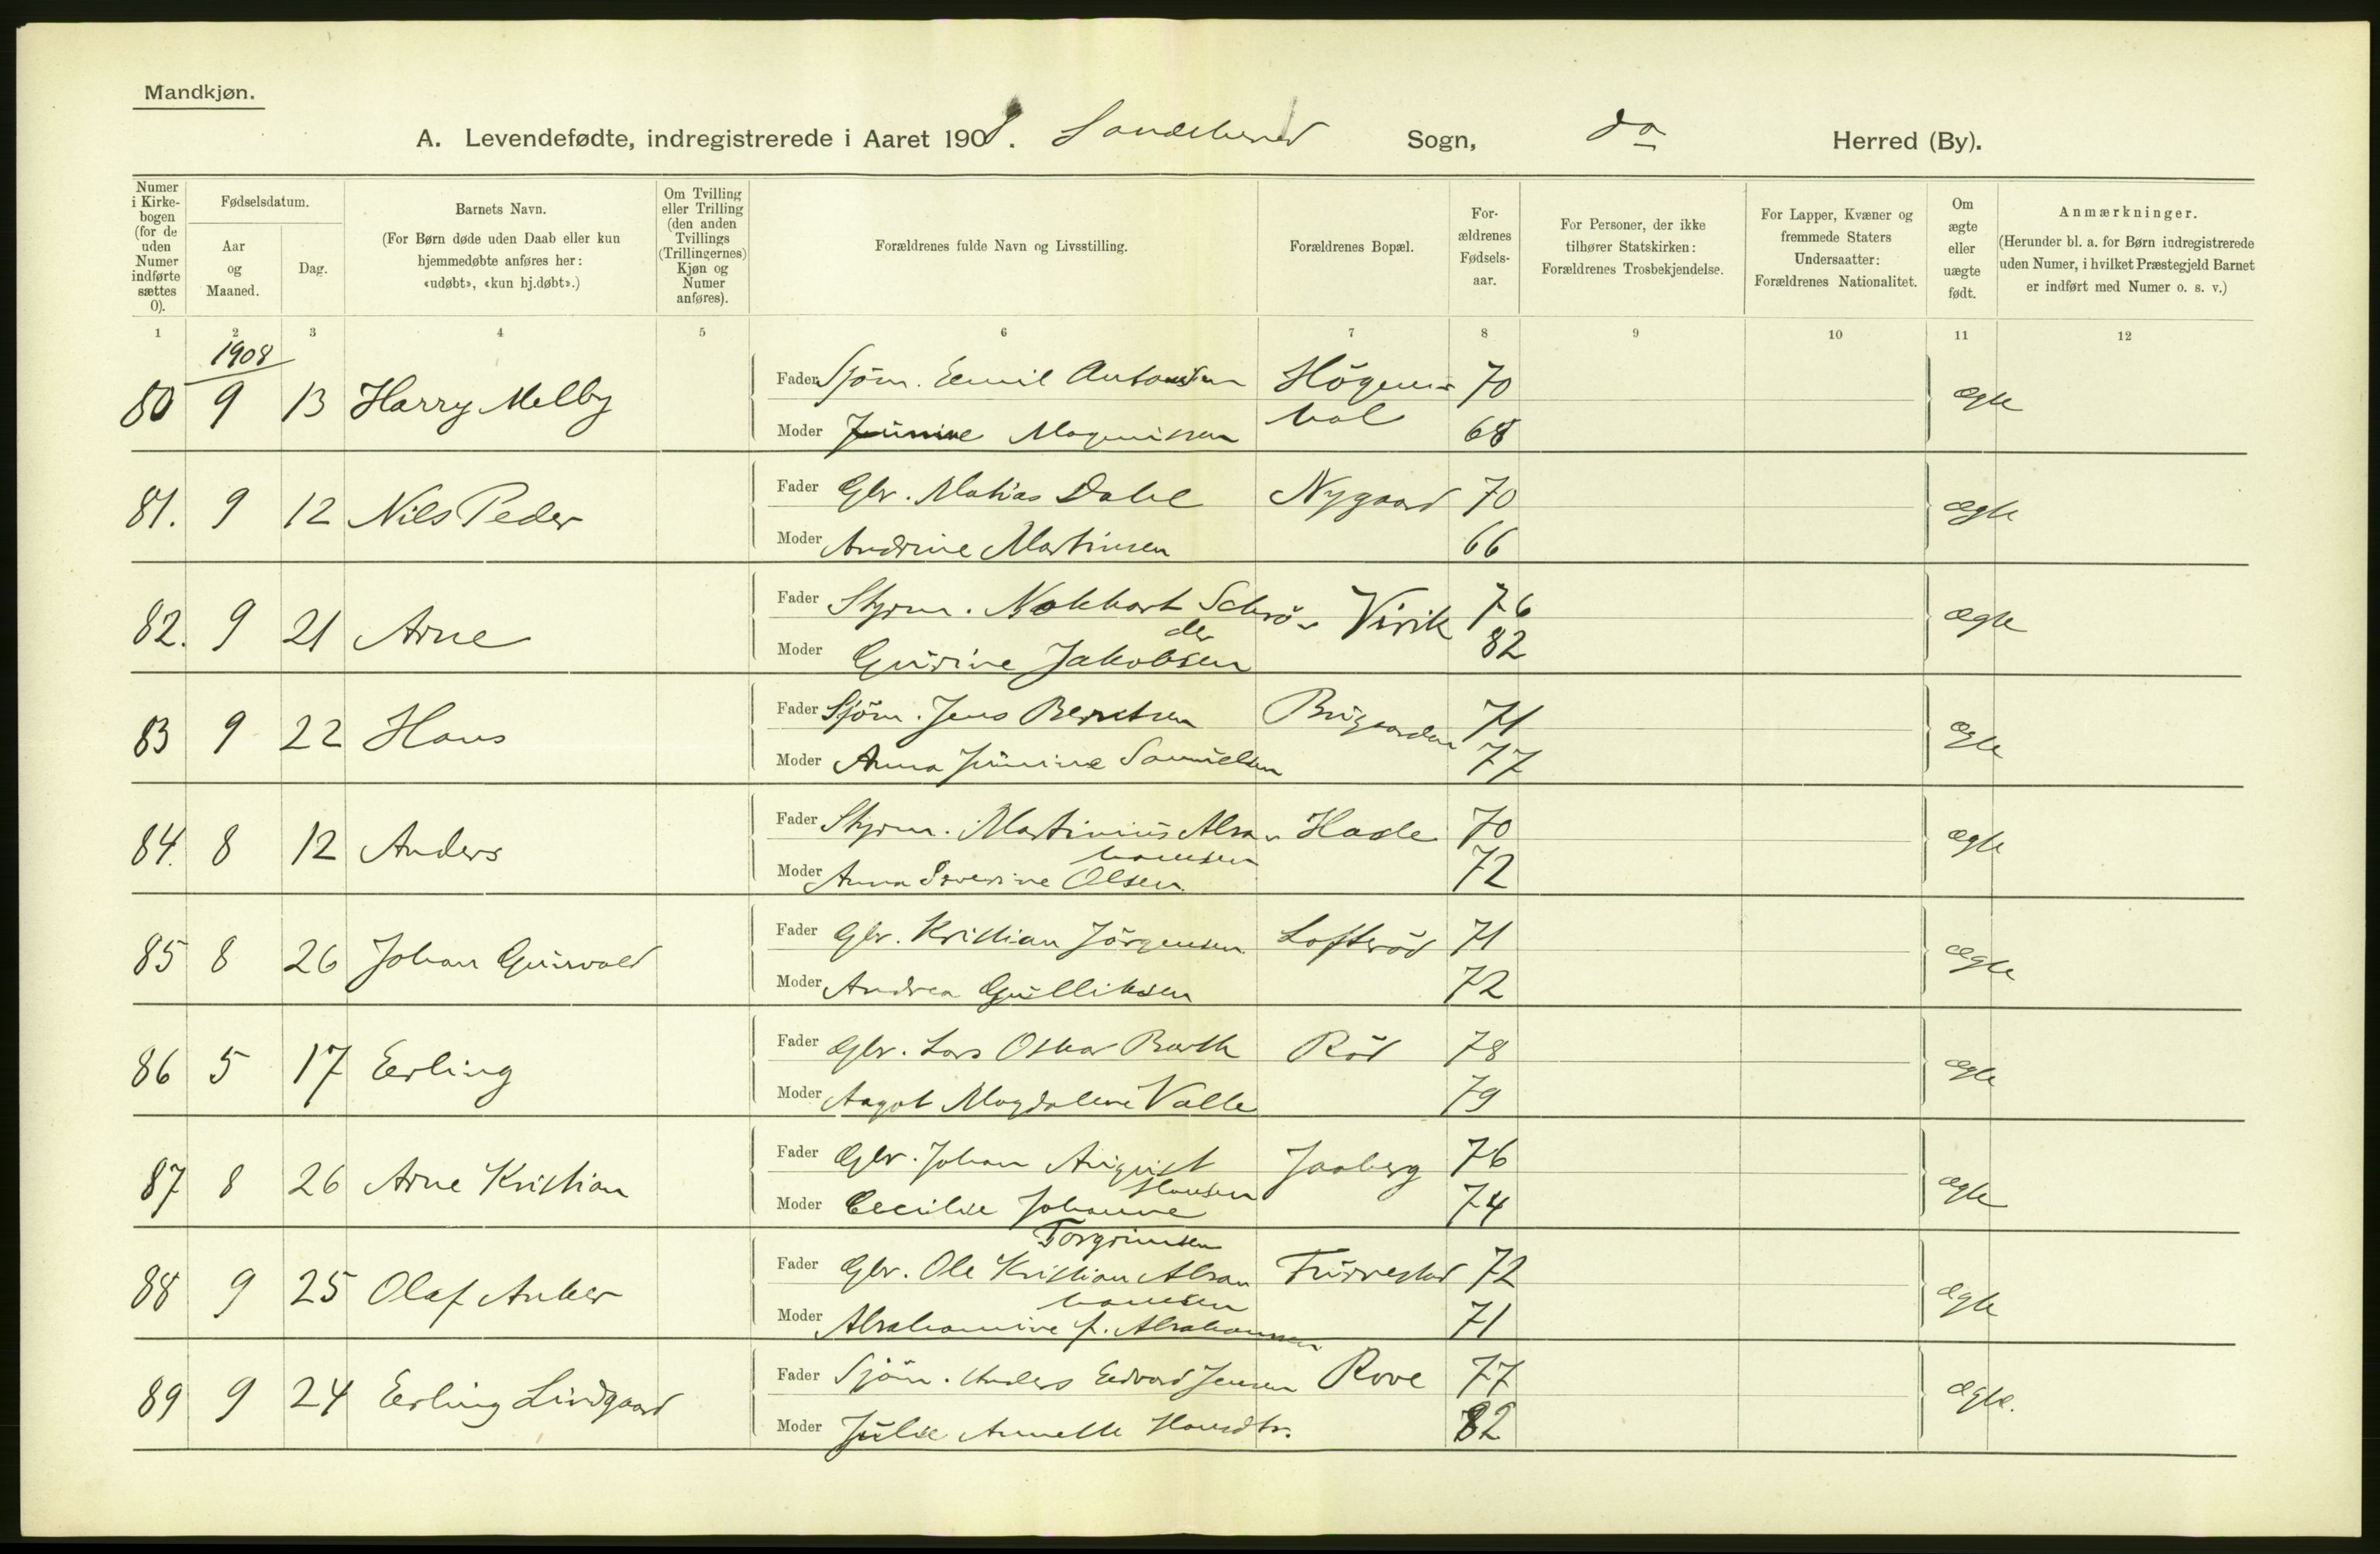 Mandkjøn.
A. Levendefødte, indregistrerede i Aaret 1908. Sandeherred Sogn, do Herred (By).
Numer i Kirke-bogen (for de uden Numer indførte sættes 0).
Fødselsdatum.
Aar og Maaned.
Dag.
Barnets Navn.
(For Børn døde uden Daab eller kun hjemmedøbte anføres her: «udøbt», «kun hj.døbt».)
Om Tvilling eller Trilling (den anden Tvillings (Trillingernes) Kjøn og Numer anføres).
Forældrenes fulde Navn og Livsstilling.
Forældrenes Bopæl.
For-ældrenes Fødsels-aar.
For Personer, der ikke tilhører Statskirken: Forældrenes Trosbekjendelse.
For Lapper, Kvæner og fremmede Staters Undersaatter: Forældrenes Nationalitet.
Om ægte eller uægte født.
Anmærkninger.
(Herunder bl. a. for Børn indregistrerede uden Numer, i hvilket Præstegjeld Barnet er indført med Numer o. s. v.)
1 2 3 4 5 6 7 8 9 10 11 12
1908
80 9 13 Harry Melby Fader Sjöm. Emil Antonsen Högem- 70 ægte
Moder Junine Magnussen 68
81. 9 12 Nils Peder Fader Gbr. Mathias Dahl Nygaard 70 ægte
Moder Andrine Martinsen 66
82. 9 21 Arne Fader Styrm. Schrö- Virik 76 ægte
der
Moder Gurine Jakobsen 82
83 9 22 Hans Fader Sjöm. Jens Berntsen Brigaarden 71 ægte
Moder Anna Junine Samuelsen 77
84. 8 12 Anders Fader Styrm. Martinius Abra- Hasle 70 ægte
hamsen
Moder Anna Severine Olsen 72
85 8 26 Johan Gunvald Fader Gbr. Kristian Jörgensen Lofteröd 71 ægte
Moder Andrea Gulliksen 72
86 5 17 Erling Fader Gbr. Lars Oskar Barth Röd 78 ægte
Moder Aagot Magdalene Valle 79
87 8 26 Arne Kristian Fader Gbr. Johan August Jaaberg 76 ægte
Hansen
Moder Cecilie Johanne 74
Torgrimsen
88 9 25 Olaf Anker Fader Gbr. Ole Kristian Abra Furrestad 72 ægte
hamsen
Moder Abrahamine f. Abrahamsen 71
89 9 24 Erling Lindgaard Fader Sjöm. Anders Edvard Jensen Rove 77 ægte.
Moder Julie Annette Hansdtr. 82